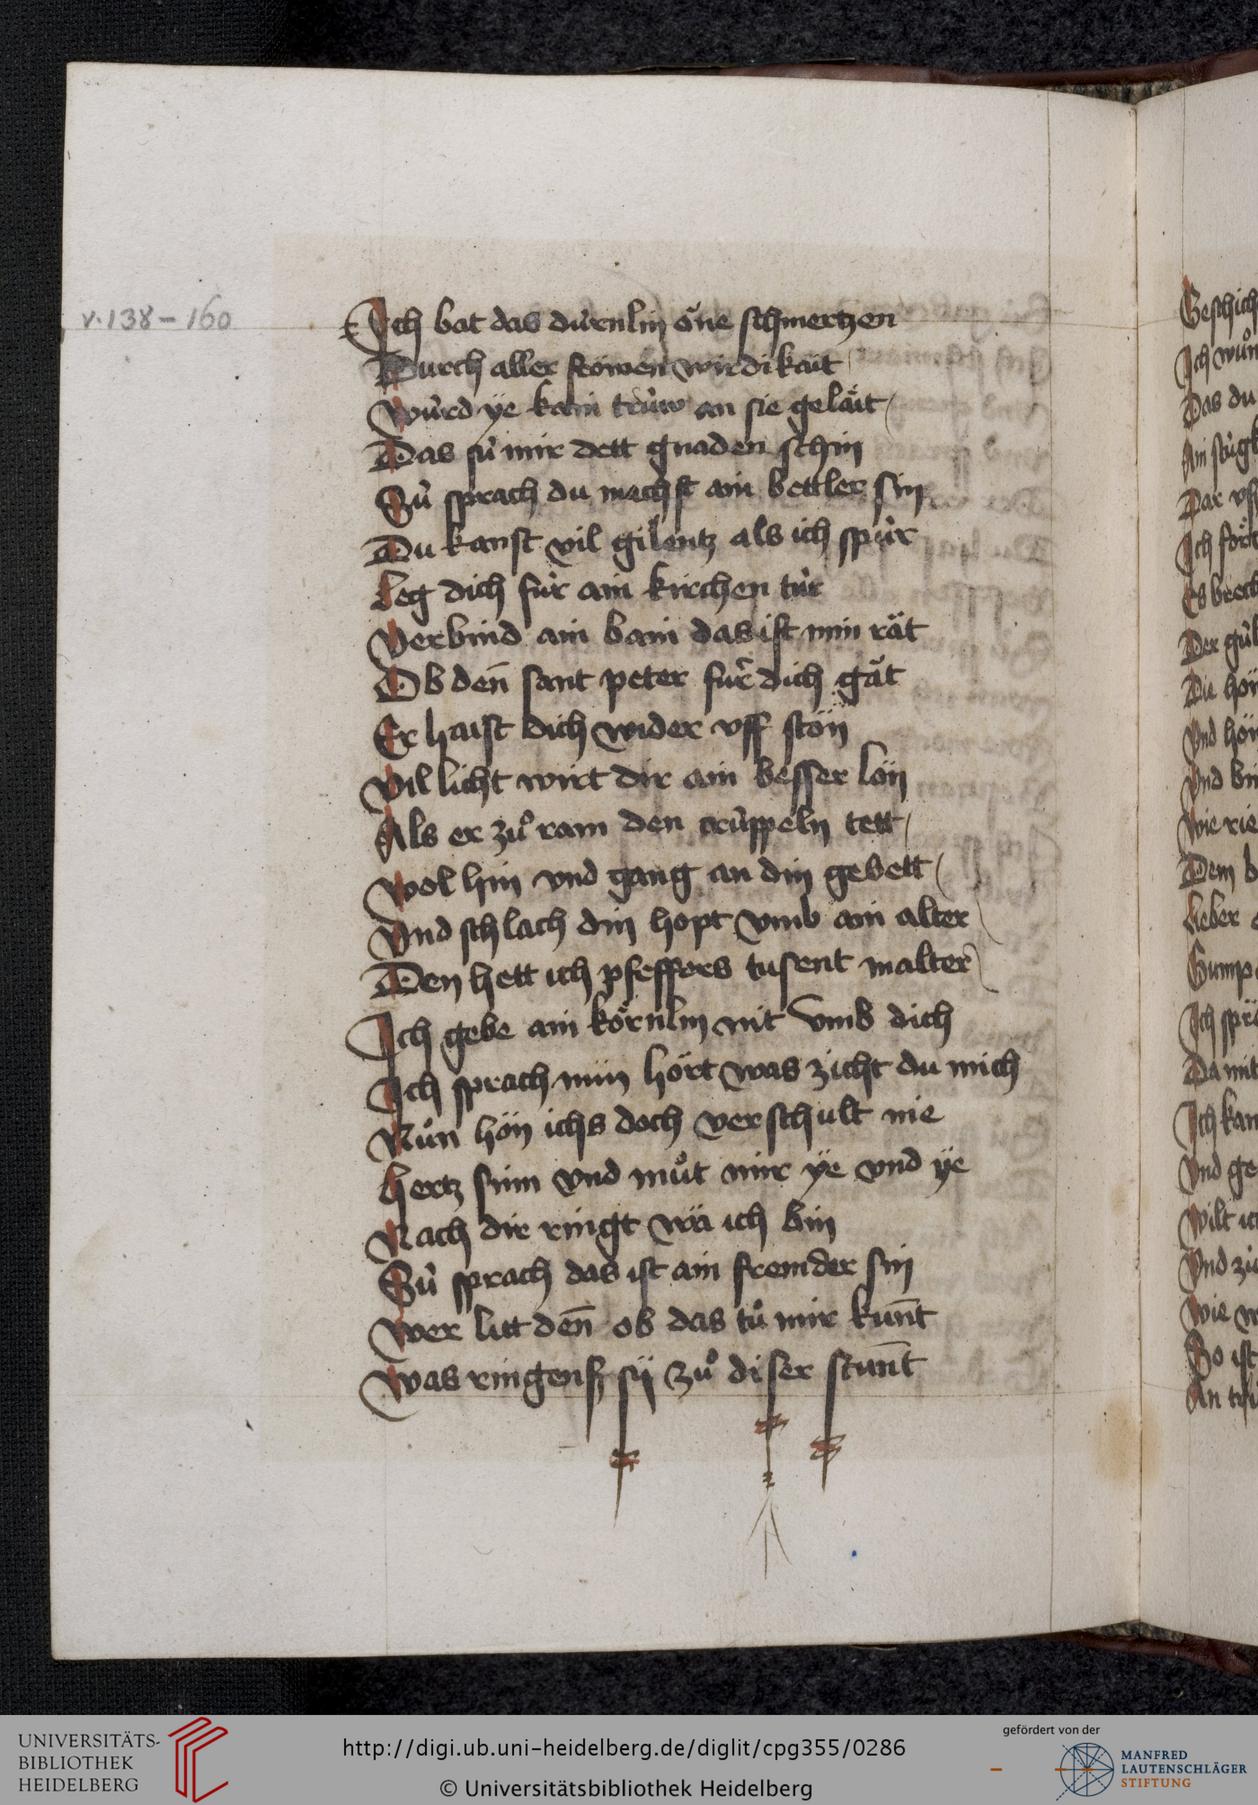 v. 138 – 160
Ich bat das dürnlin öne schmertzen
Durch aller frowen wirdikait
Würd ye kain trüw an sie geläit
Das sü mir dett gnaden schin
Sü sprach du machst ain bettler sin
Du kanst vil gilentz als ich spür
Leg dich für ain kirchen tür
Verbind ain bain das ist min rät
Ob den̄ sant peter für dich gät
Er haist dich wider vff stön
Vil licht wirt dir ain besser lön
Als er zuͦ ram den crüppeln tett
Wol hin vnd gang an din gebett
Vnd schlach din hopt vmb ain alter
Den hett ich pfeffers tusent malter
Ich gebe ain körnlin nit vmb dich
Ich sprach min hört was zicht du mich
Nuͦn hön ichs doch verschult nie
Hertz sinn vnd muͦt mir ÿe vnd ÿe
Nach dir ringt wä ich bin
Sü sprach das ist ain fremder sin
Wer lüt den̄ ob das tuͦ mir kun̄t
Was ringens sÿ zuͦ diser stun̄t
Ich
Das du
Dar vff
Der
Die
Vnd
Vnd
Wie
Dem
Lieber
Ich
Da mit
Ich kan
Vnd
Wilt
Vnd
Wie
So ist
An
UNIVERSITÄTS-
BIBLIOTHEK
HEIDELBERG
http://digi.ub.uni-heidelberg.de/diglit/cpg355/0286
© Universitätsbibliothek Heidelberg
gefördert von der
MANFRED
LAUTENSCHLÄGER
STIFTUNG